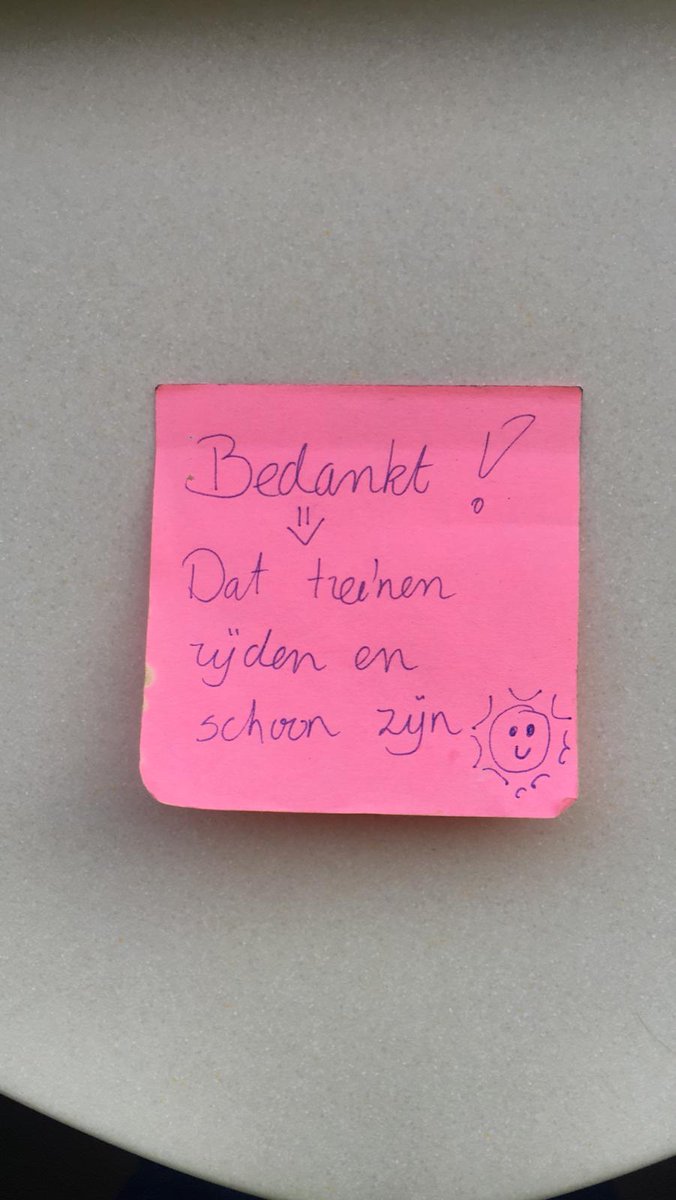 Bedankt !
⇓
Dat treinen
rijden en
schoon zijn